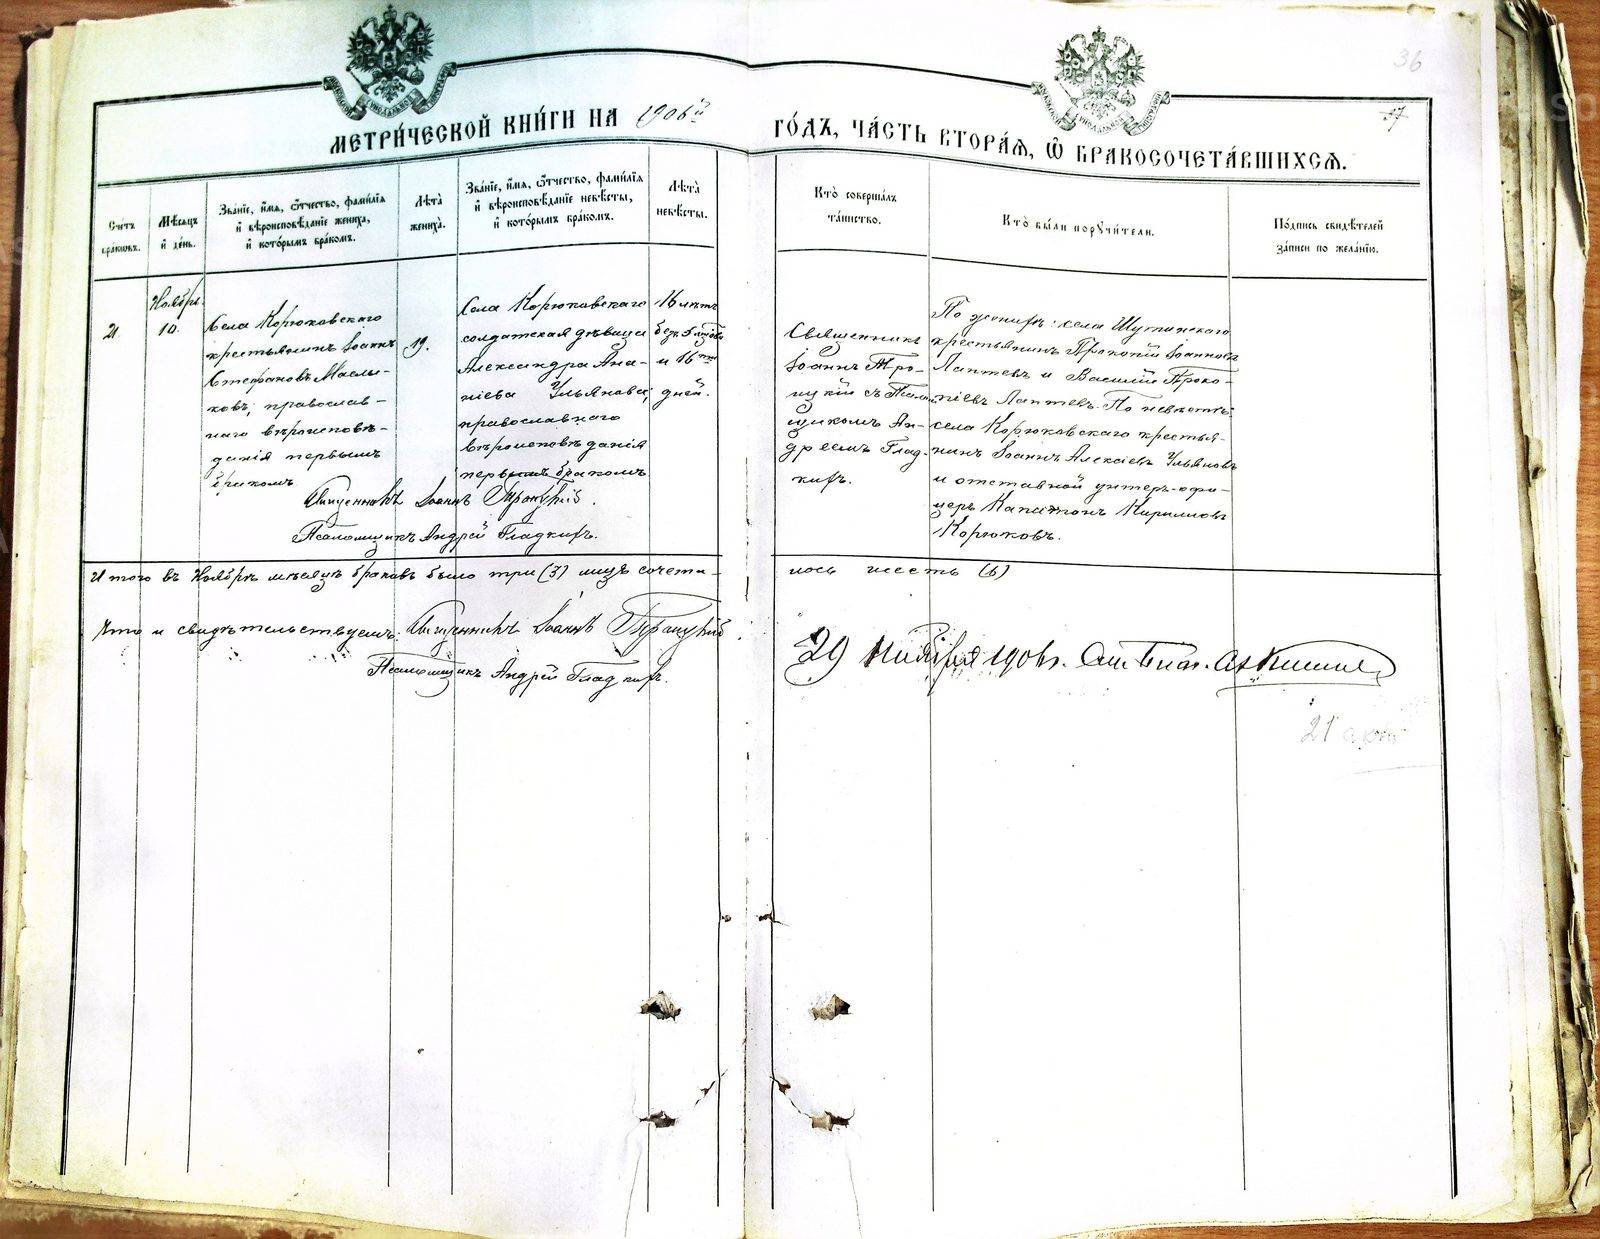 36
37
МЕТРИ́ЧЕСКОЙ КНИ́ГИ НА 1906й ГО́ДЪ, ЧА́СТЬ ВТОРА́Я, Ѿ БРАКОСОЧЕТА́ВШИХСЯ.
Сче́тъ
бра́ковъ.
Мѣ́сяцъ
и́ де́нь.
Зва́нїе, и́мя, ѻ́тчество, фами́лїя
и́ вѣроисповѣ́данїе жениха̀,
и́ кото́рымъ бра́комъ.
Лѣ́та
жениха̀.
Зва́нїе, и́мя, ѻ́тчество, фами́лїя
и́ вѣроисповѣ́данїе невѣ́сты,
и́ кото́рымъ бра́комъ.
Лѣ́та
невѣ́сты.
Кто̀ соверша́лъ
та́инство.
Кто̀ бы́ли порꙋчи́тели.
По́дпись свидѣ́телей
за́писи по жела́нїю.
21
Ноября
10.
Села Корюковскаго
крестьянинъ Іоаннъ
Стефановъ Маслы-
ковъ; православ-
наго вѣроисповѣ-
данія первымъ
бракомъ
19.
Села Корюковскаго
солдатская дѣвица
Александра Ана-
ніева Ульянова;
православнаго
вѣроисповѣданія
первымъ бракомъ
16 лѣтъ
безъ
и 16
дней.
Священникъ
Іоаннъ Тро-
ицкій съ Псалом-
щикомъ Ан-
дреемъ Глад-
кихъ.
По женихѣ: села Шутинскаго
крестьянинъ Прокопій Іоанновъ
Лаптевъ и Василій Проко-
піевъ Лаптевъ. По невѣстѣ:
села Корюковскаго крестья-
нинъ Іоаннъ Алексіевъ Ульяновъ
и отставной унтеръ-офи-
церъ Капитонъ Кириловъ
Корюковъ.
Священникъ Іоаннъ Троицкій.
Псаломщикъ Андрей Гладкихъ.
Итого въ Ноябрѣ мѣсяцѣ браковъ было три (3) лицъ сочета-
лось шесть (6)
Что и свидѣтельствуемъ: Священникъ Іоаннъ Троицкій
Псаломщикъ Андрей Гладкихъ.
29 Ноября 1906 г.
21